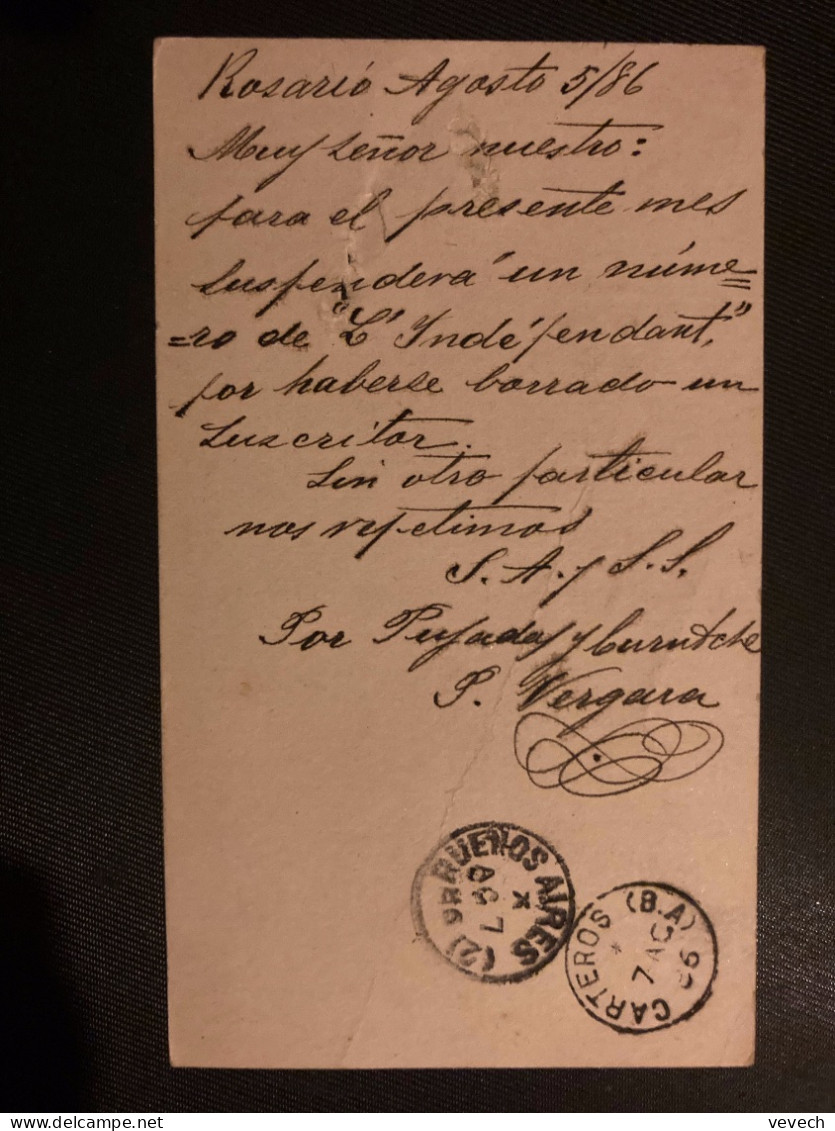 Rosario Agosto 5/86
Muy Señor nuestro:
para el presente mes
suspenderá un núme=
=ro de "L'Indépendant,"
por haberse borrado un
suscritor.
Sin otro particular
nos repetimos
S. A. y S. S.
Por Pujadas y Curutche
P. Vergara
BUENOS AIRES
AG 7
86
(2)
CARTEROS (B.A)
7 AG 86
vevech